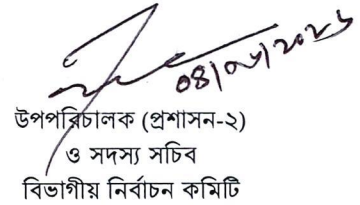 উপপরিচালক (প্রশাসন-২)
ও সদস্য সচিব
বিভাগীয় নির্বাচন কমিটি